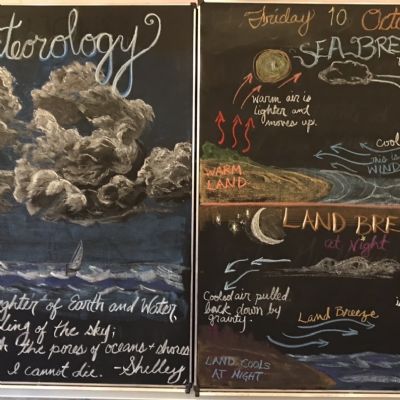 teorology
ghter of Earth and Water,
ling of the sky;
the pores of oceans + shores
I cannot die. - Shelley
Friday 10 Octo
SEA BRE
Warm air is
lighter and
moves up.
cool
THIS IS
WIND
WARM
LAND
LAND BRE
at Night
Cooled air pulled
back down by
gravity.
Land Breeze
LAND COOLS
AT NIGHT